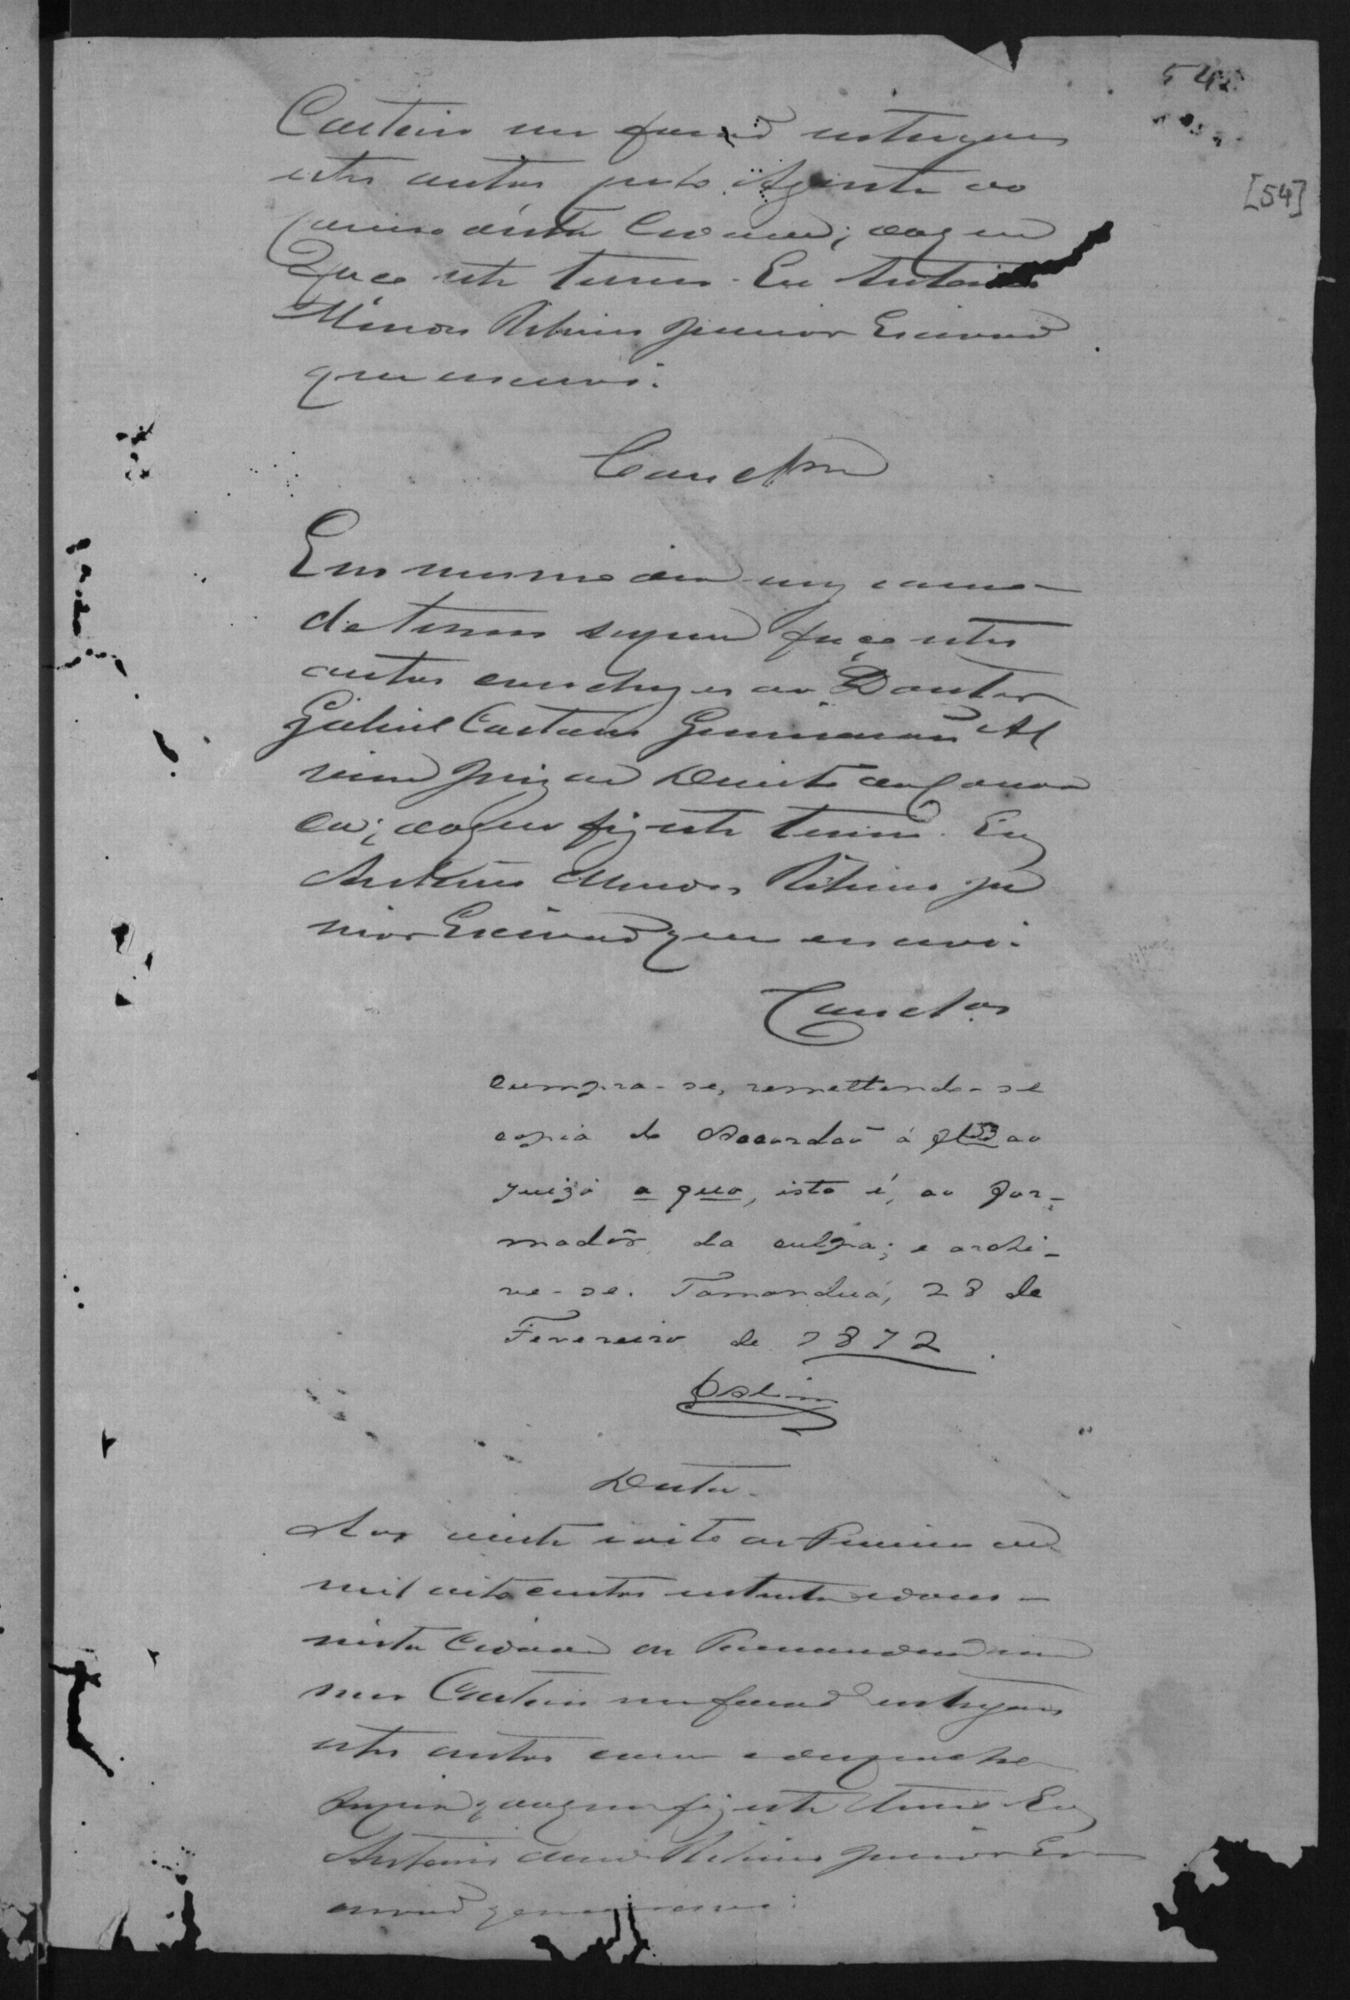 54
[54]
Cartorio me forão entregues
estes autos pelo Agente do
Correio desta Cidade; do que
faço este termo. Eu Antonio
Mendes Ribeiro Junior Escrivão
que escrevi.
Concl.am
Em mesmo dia mez e anno
do termo supra faço estes
autos conclusos ao Doutor
Gabriel Caetano Guimarães Al
vim Juiz de Direito da Comar
ca; do que fiz este termo. Eu
Antonio Mendes Ribeiro Ju
nior Escrivão que escrevi.
Conclos
Cumpra-se, remettendo-se
copia do Accordão á fl 53 ao
juizo a quo, isto é, ao For-
mador da culpa; e archi-
ve-se. Tamanduá, 28 de
Fevereiro de 1872.
Data
Aos vinte e oito de Fevereiro de
mil oito centos setenta e dous
nesta Cidade de Tamanduá em
meu Cartorio me forão entregues
estes autos com o despacho
supra; do que fiz este termo. Eu
Antonio Mendes Ribeiro Junior Es
crivão que escrevi.